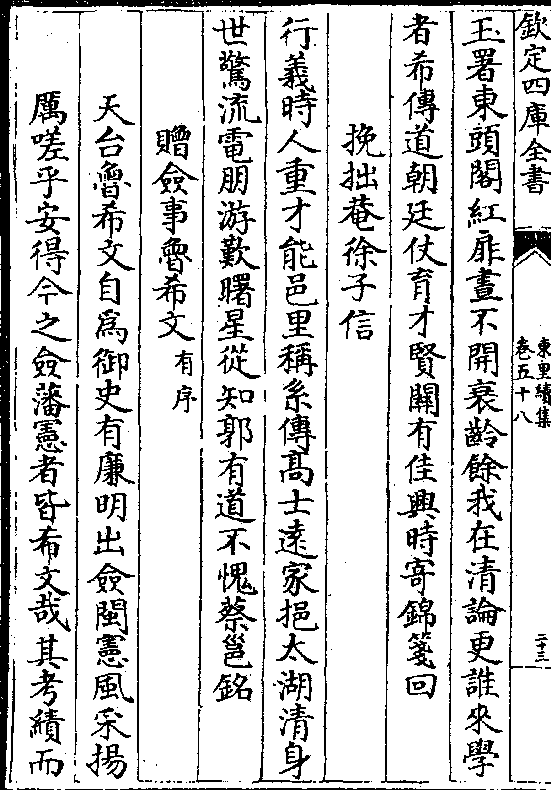 欽定四庫全書
東里續集
卷五十八
二十三
玉署東頭閣紅扉晝不開衰齡餘我在清論更誰來學
者希傳道朝廷仗育才賢關有佳興時寄錦箋回
挽拙菴徐子信
行義時人重才能邑里稱系傳高士遠家挹太湖清身
世驚流電朋游歎曙星從知郭有道不愧蔡邕銘
贈僉事魯希文有序
天台魯希文自為御史有廉明出僉閩憲風采揚
厲嗟乎安得今之僉藩憲者皆希文哉其考績而